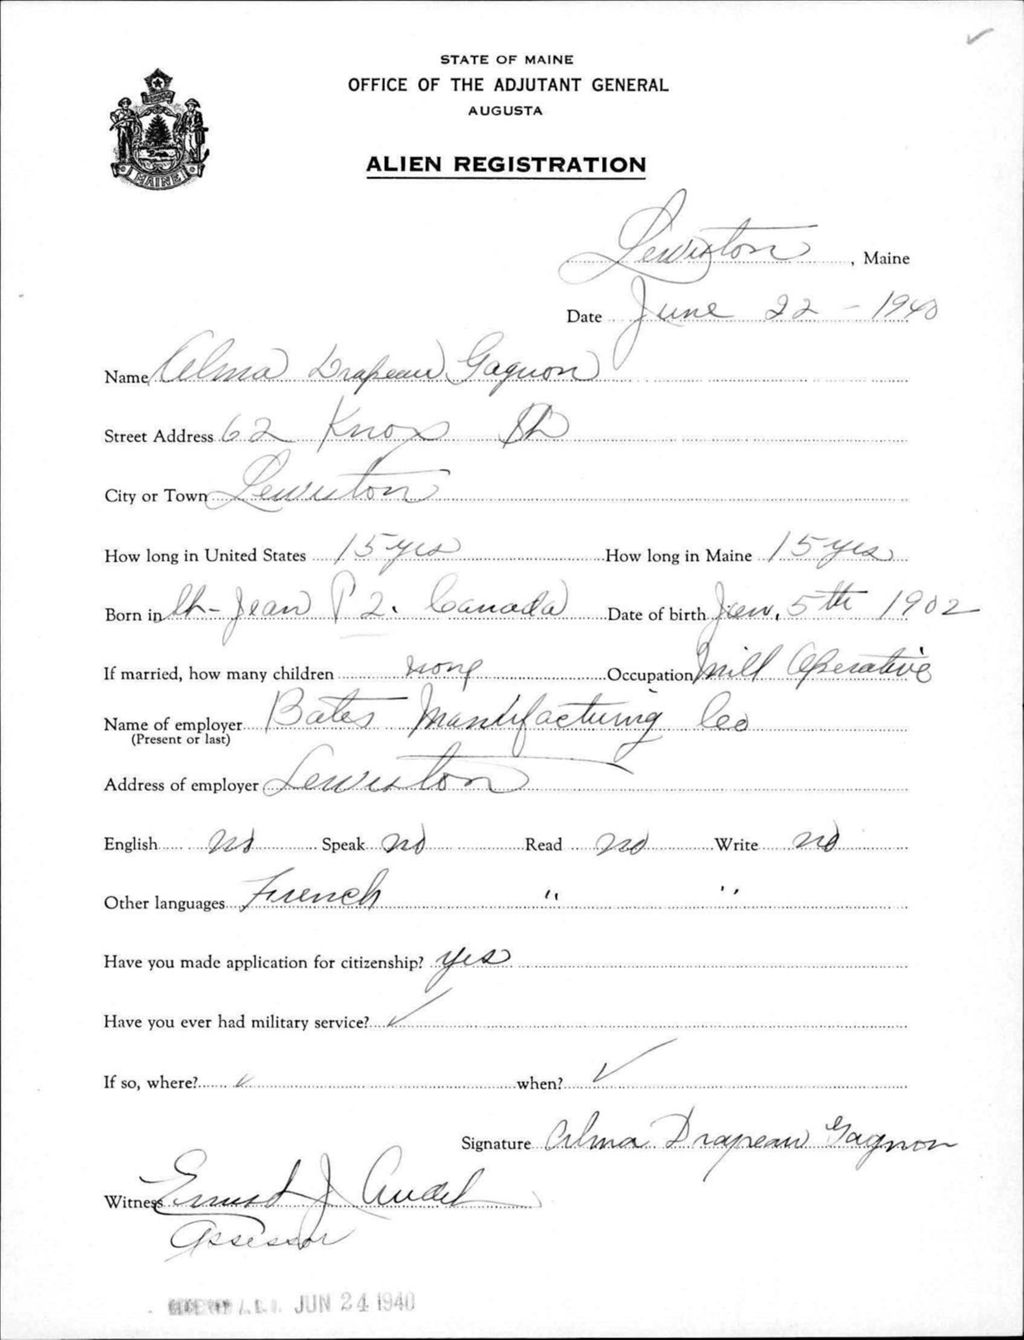 STATE OF MAINE
OFFICE OF THE ADJUTANT GENERAL
AUGUSTA
MAINE
ALIEN REGISTRATION
Lewiston, Maine
Date June 22 - 1940
Name Alma Drapeau Gagnon
Street Address 62 Knox St
City or Town Lewiston
How long in United States 15 yrs How long in Maine 15 yrs
Born in St-Jean P 2. Canada Date of birth Jan. 5th 1902
If married, how many children none Occupation Mill Operative
Name of employer Bates Manufacturing Co
(Present or last)
Address of employer Lewiston
English no Speak no Read no Write no
Other languages French " "
Have you made application for citizenship? yes
Have you ever had military service? ✓
If so, where? ✓ when? ✓
Signature Alma Drapeau Gagnon
Witness Ernest J Audet
Assessor
JUN 24 1940